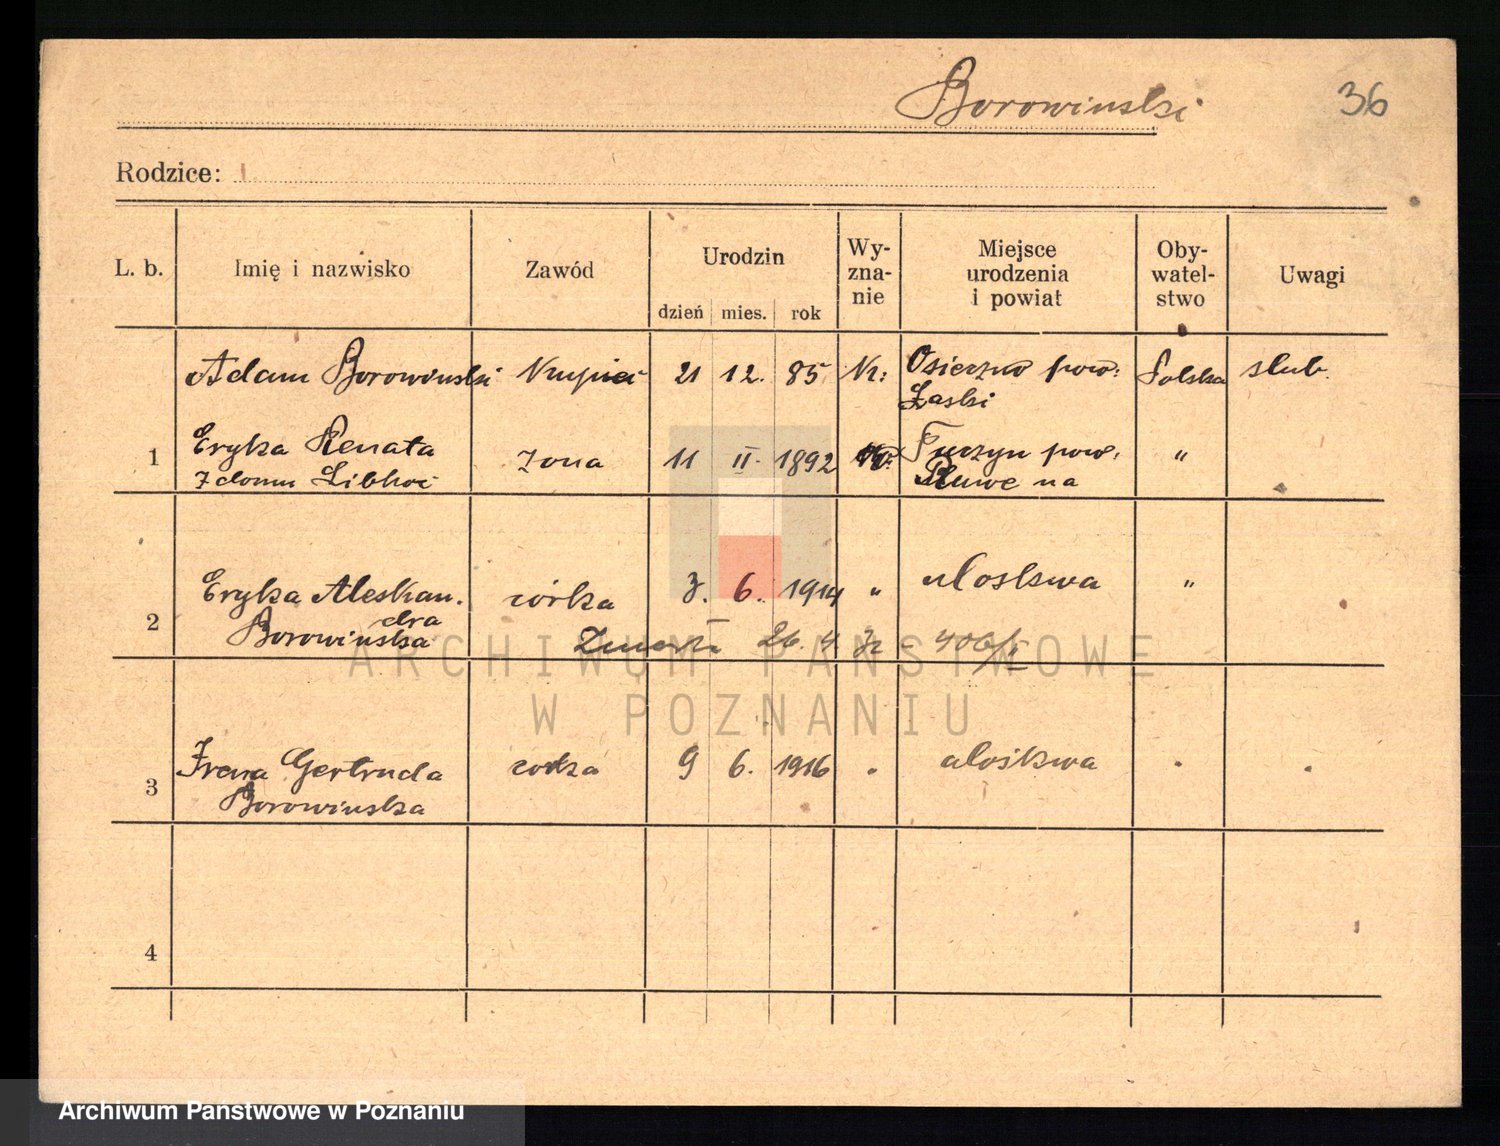 Borowinski 36
Rodzice:
L. b. Imię i nazwisko Zawód Urodzin dzień mies. rok Wy-zna-nie Miejsce urodzenia i powiat Oby-watel-stwo Uwagi
Adam Borowinski Kupiec 21 12. 85 Osieczno pow:
Łaski Polska slub.
1 Eryka Renata żona 11 II. 1892 pow. "
z domu na
2 Eryka Aleskan. córka 3. 6. 1914 " Moskwa "
dra
Borowinska
Zmarła 26. 4. 406/II
3 Irena Gertruda corka 9 6. 1916 Moskwa
Borowinska
4
ARCHIWUM PAŃSTWOWE
W POZNANIU
Archiwum Państwowe w Poznaniu